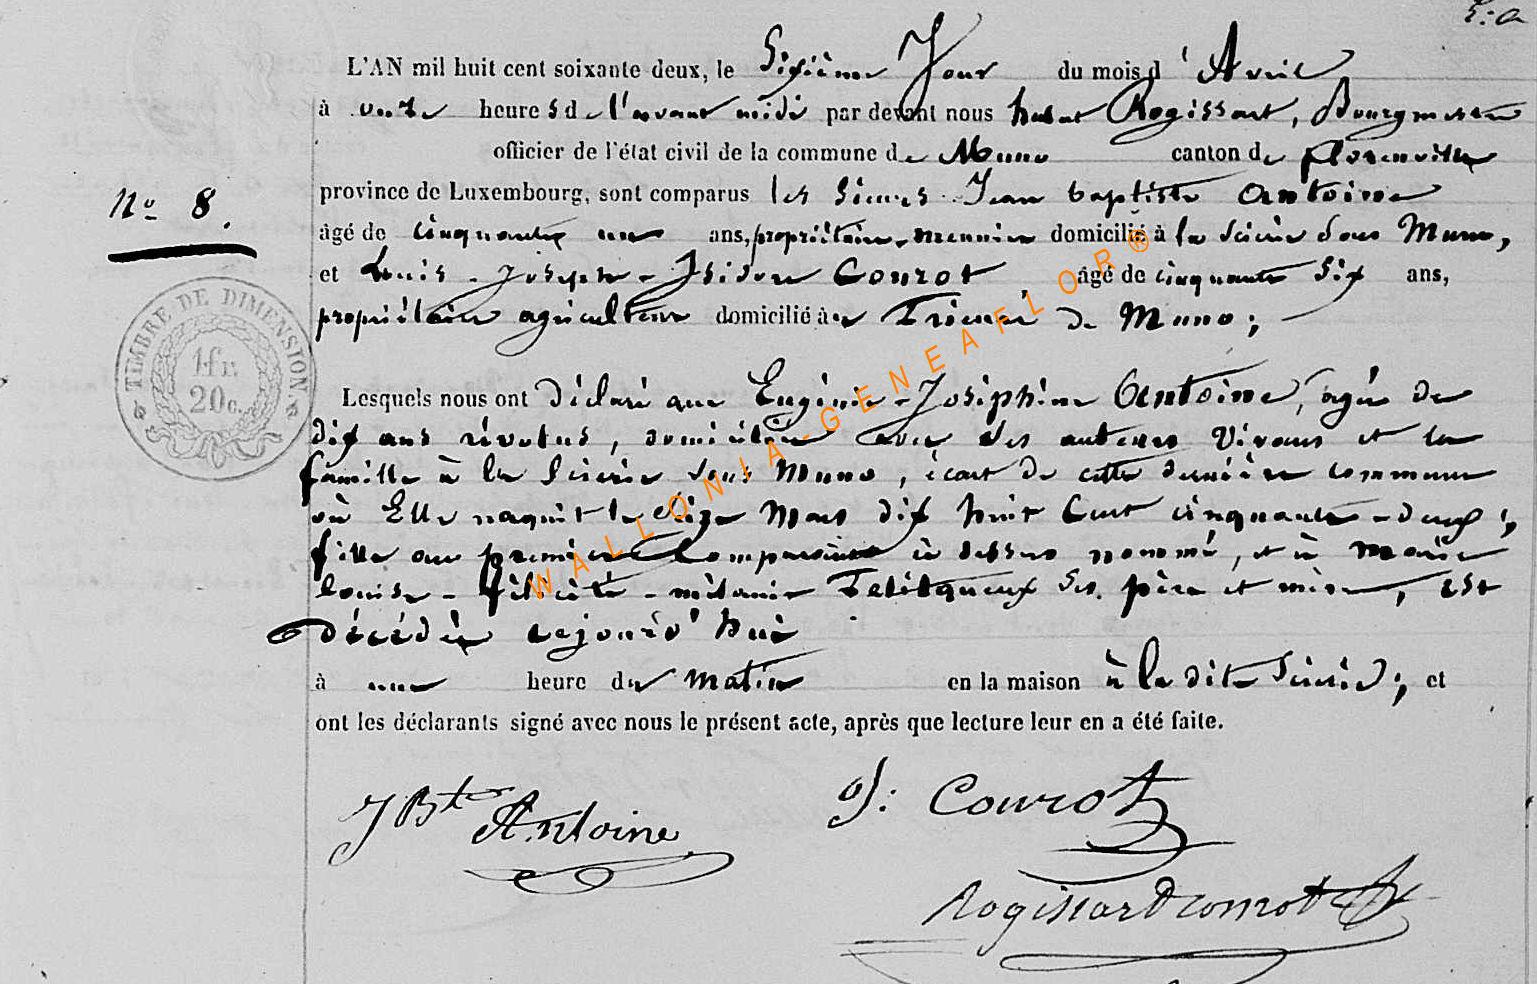 L'AN mil huit cent soixante deux, le Sixième Jour du mois d'Avril
à onze heures de l'avant midi par devant nous hubert Rogissart, Bourgmestre
officier de l'état civil de la commune de Muno canton de florenville
N° 8.
province de Luxembourg, sont comparus les Sieurs Jean baptiste Antoine
âgé de cinquante un ans, propriétaire, meunier domicilié à la Scierie sous Muno,
et Louis-Joseph-Isidore Conrot âgé de cinquante six ans,
propriétaire agriculteur domicilié à de Muno;
TIMBRE DE DIMENSION.
1 fr.
20 c.
Lesquels nous ont déclaré que Eugénie-Joséphine Antoine, agée de
dix ans révolus, domiciliée avec ses auteurs vivans et la
famille à la Scierie sous Muno, écart de cette dernière commune
où Elle naquit le Mars dix huit Cent cinquante-deux;
fille au premier Comparant ci dessus nommé, et à Marie
louise-félicité-mélanie ses père et mère, est
décédée cejourd'hui
à une heure du matin en la maison à la dite Scierie; et
ont les déclarants signé avec nous le présent acte, après que lecture leur en a été faite.
J Bte Antoine
J: Conrot
Rogissart Conrot
WALLONIA-GENEAFLOR®